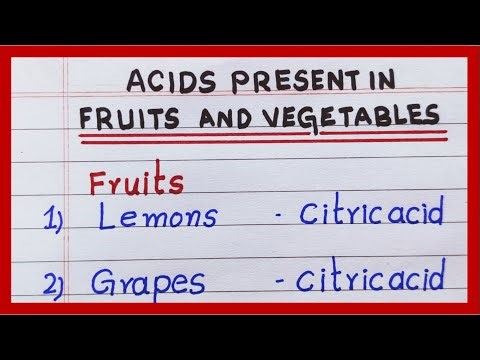 ACIDS PRESENT IN
FRUITS AND VEGETABLES
Fruits
1) Lemons - Citric acid
2) Grapes - Citric acid